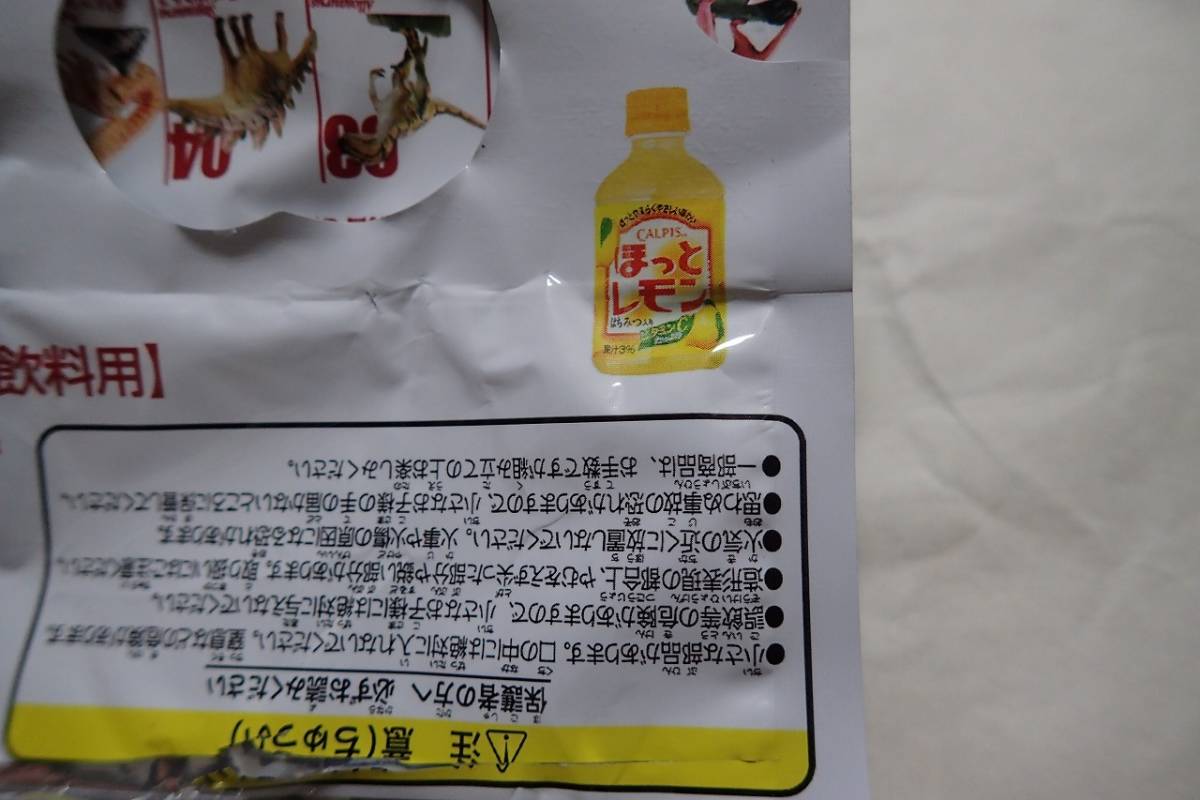 04
03
ほっとやすらぐやさしい味わい
CALPIS
ほっと
レモン
はちみつ入り
ビタミンC
果汁3%
飲料用】
注 意(ちゅうい)
保護者の方へ 必ずお読みください
●小さな部品があります。口の中には絶対に入れないでください。窒息などの危険があります。
●誤飲等の危険がありますので、小さなお子様には絶対に与えないでください。
●造形表現の都合上、やむをえず尖った部分や鋭い部分があります。取り扱いにはご注意ください。
●火気の近くに放置しないでください。火事や火傷の原因になる恐れがあります。
●思わぬ事故の恐れがありますので、小さなお子様の手の届かないところに保管してください。
●一部商品は、お手数ですが組み立ての上お楽しみください。